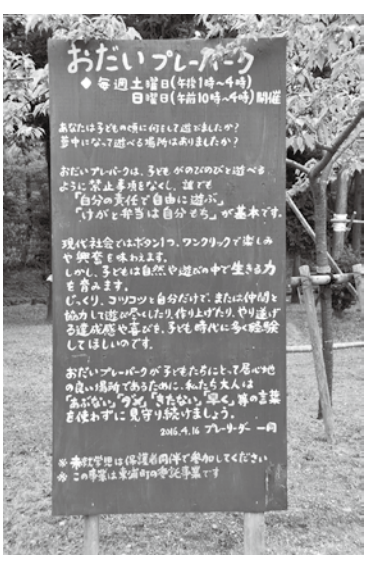 おだいプレーパーク
◆毎週土曜日(午後1時〜4時)
日曜日(午前10時〜4時)開催
あなたは子どもの頃に何をして遊びましたか?
夢中になって遊べる場所はありましたか?
おだいプレーパークは、子どもがのびのびと遊べる
ように禁止事項をなくし、誰でも
「自分の責任で自由に遊ぶ」
「けがと弁当は自分もち」が基本です。
現代社会ではボタン1つ、ワンクリックで楽しみ
や興奮を味わえます。
しかし、子どもは自然や遊びの中で生きる力
を育みます。
じっくり、コツコツと自分だけで、または仲間と
協力して遊び尽くしたり、作り上げたり、やり遂げ
る達成感や喜びを、子ども時代に多く経験
してほしいのです。
おだいプレーパークが子どもたちにとって居心地
の良い場所であるために、私たち大人は
「あぶない」「ダメ」「きたない」「早く」等の言葉
を使わずに見守り続けましょう。
2016.4.16 プレーリーダー 一同
※未就学児は保護者同伴で参加してください
※この事業は東浦町の委託事業です